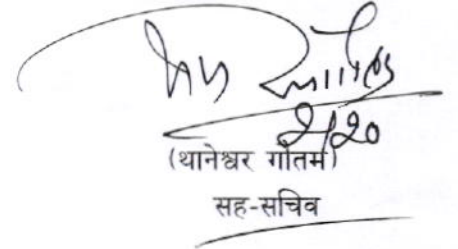 २/२०
(थानेश्वर गौतम)
सह-सचिव